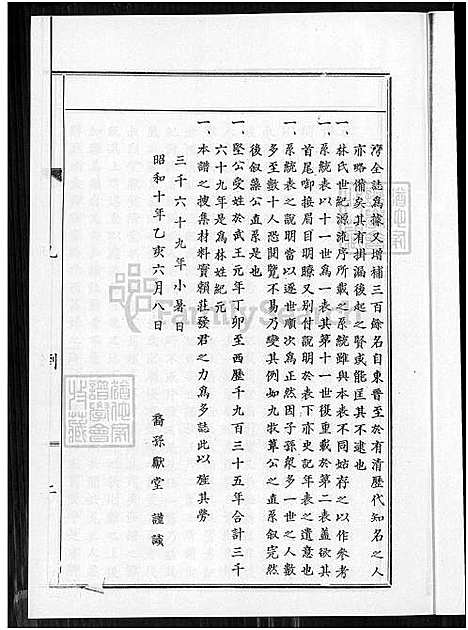 灣全誌為據又增補三百餘名自東晉至於有清歷代知名之人
亦略備矣其有掛漏後起之賢或能匡其不逮也
一、林氏世紀源流序所載之系統雖與本表不同姑存之以作參考
一、系統表以十一世為一表其第十一世復重載於第二表蓋欲其
首尾啣接眉目明瞭又別付說明於表下亦史記年表之遺意也
一、系統表之說明當以逐世順次為正然因子孫眾多一世之人數
多至數十人恐閱覽不易乃變其例如九牧葦公之直系叙完然
後叙藻公直系是也
一、堅公受姓於武王元年丁卯至西歷千九百三十五年合計三千
六十九年是為林姓紀元
一、本譜之搜集材料實賴莊發君之力為多誌此以旌其勞
三千六十九年小暑日
昭和十年乙亥六月八日
裔孫獻堂 謹識
FamilySearch